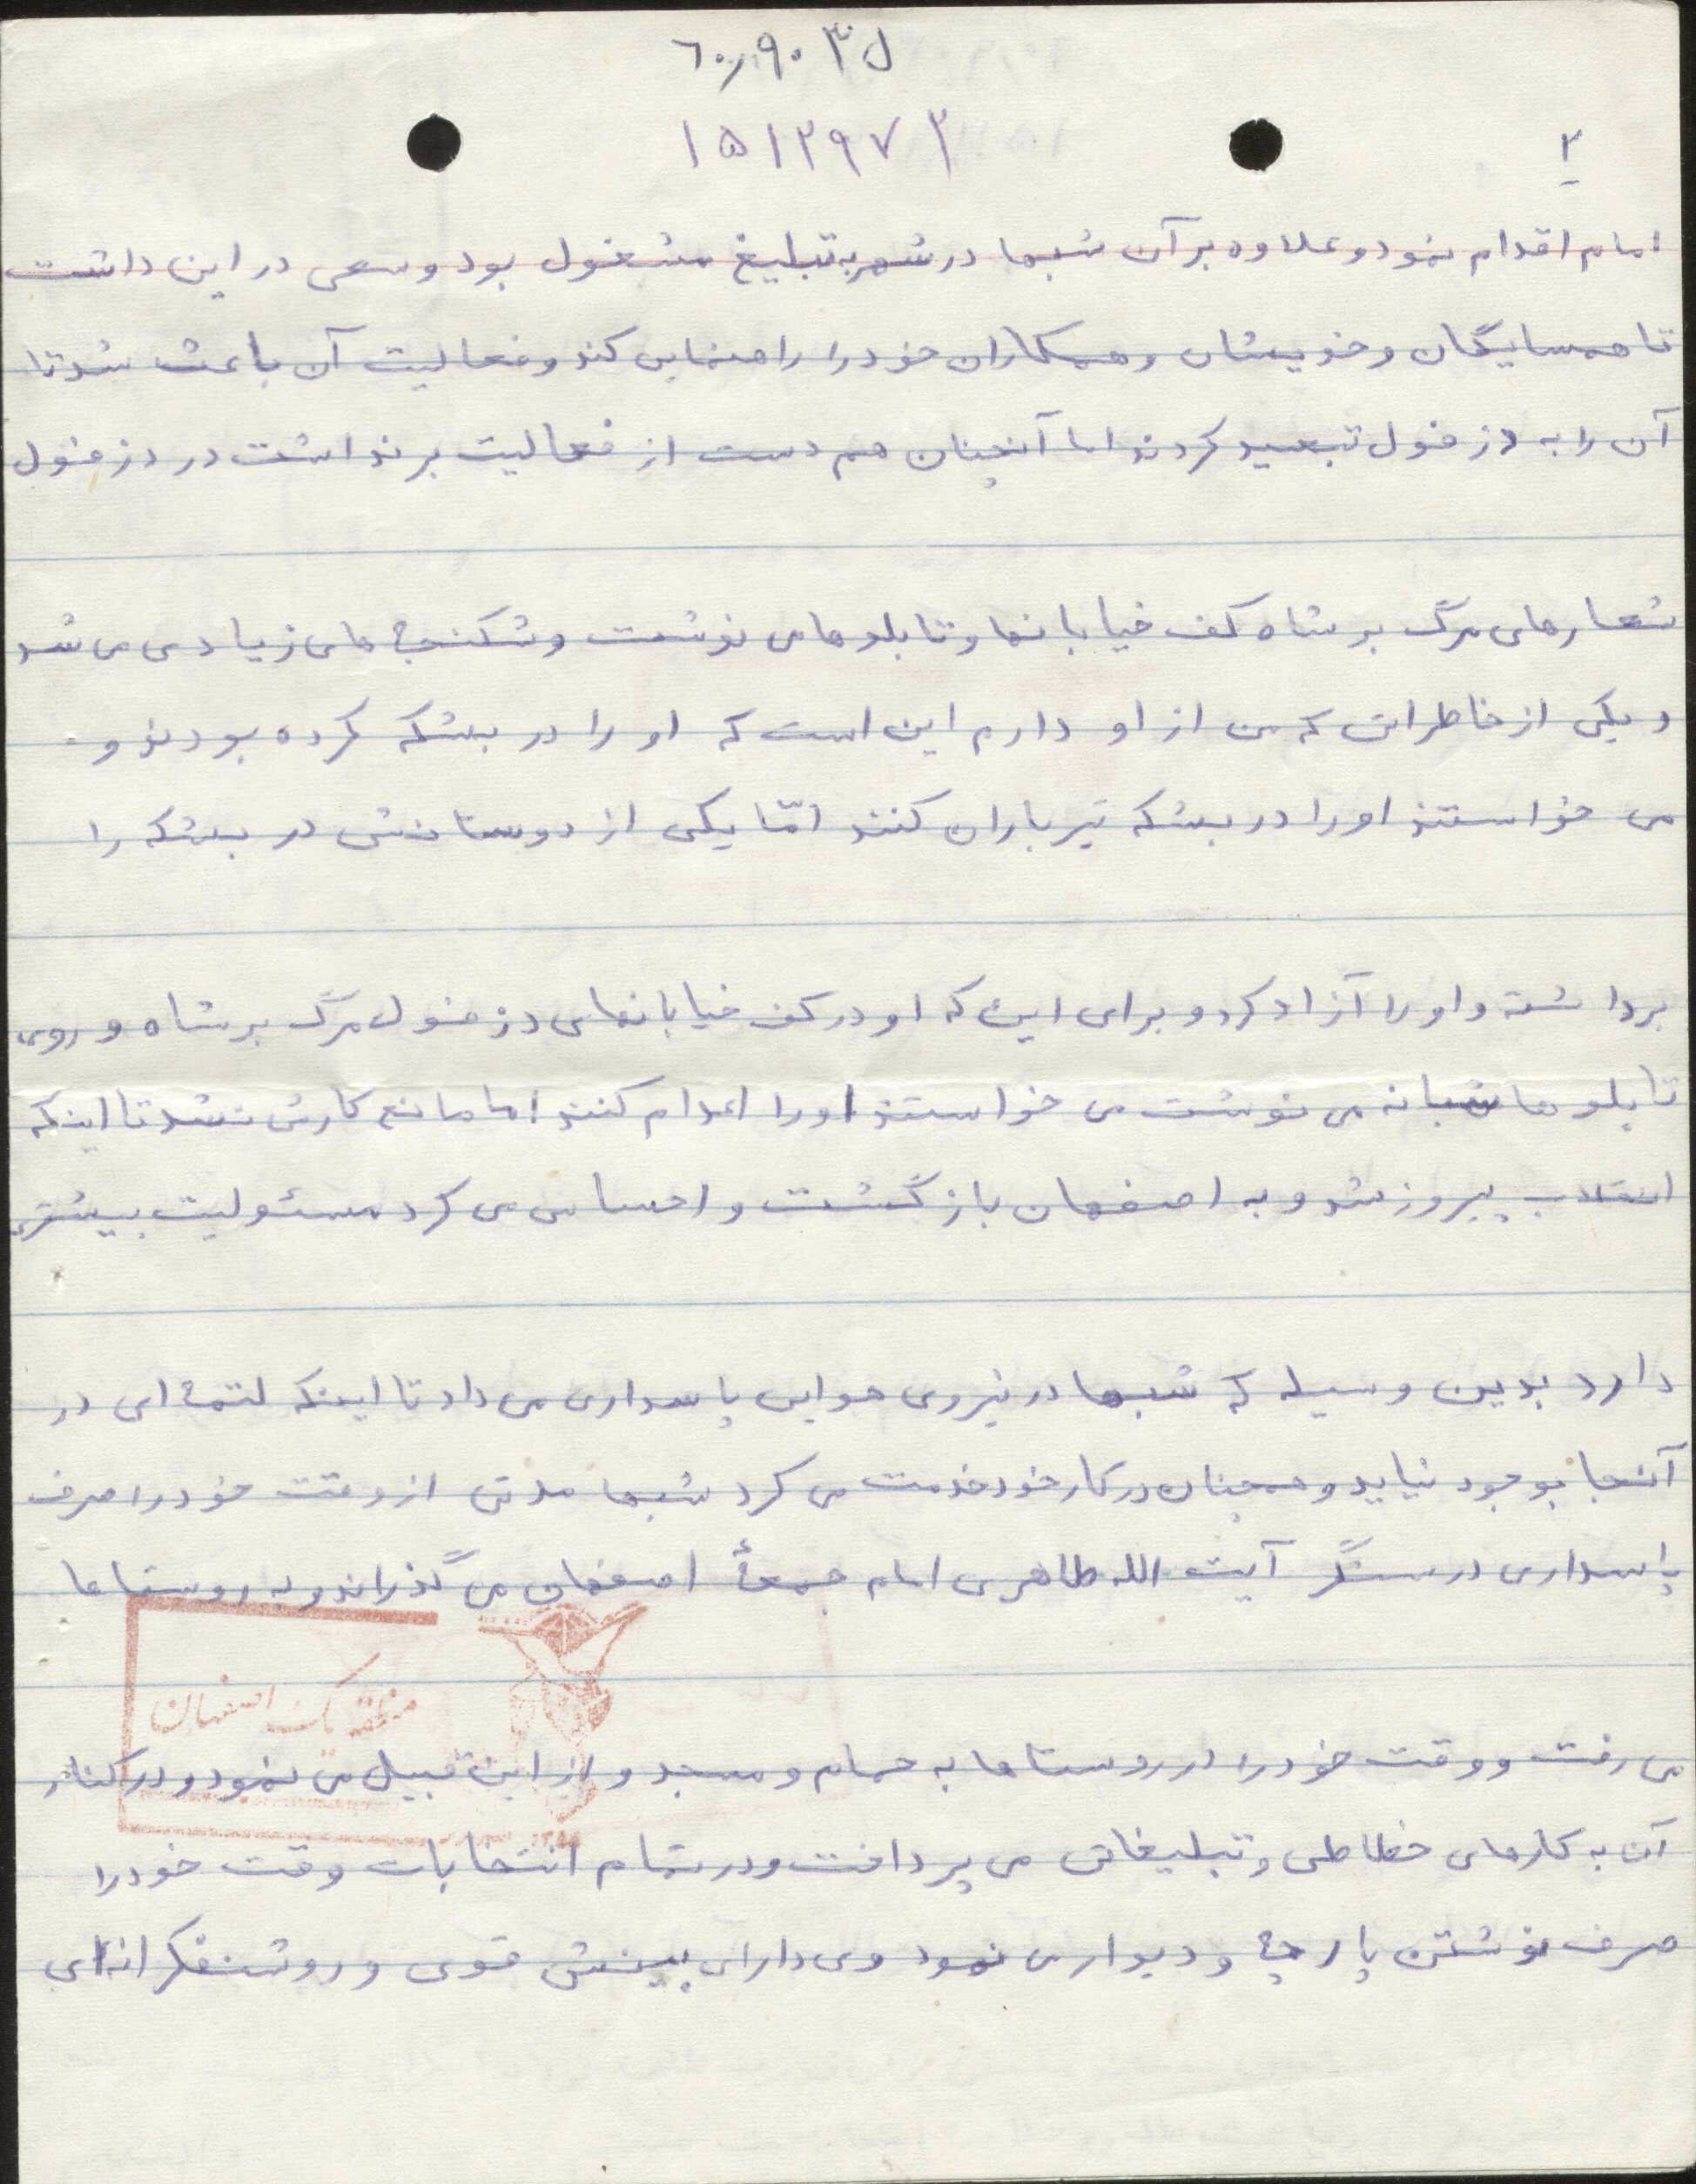 ل ۳ ۶۰٫۹۰
۱۵۱۲۹۷۳
۲
امام اقدام نمود و علاوه بر آن شبها در شهر به تبلیغ مشغول بود و سعی در این داشت
تا همسایگان و خویشان و همکاران خود را راهنمایی کند و فعالیت آن باعث شد تا
آن را به دزفول تبعید کردند اما آنچنان هم دست از فعالیت برنداشت در دزفول
شعارهای مرگ بر شاه کف خیابانها و تابلوها می نوشت و شکنجه های زیادی می شد
و یکی از خاطراتی که من از او دارم این است که او را در بشکه کرده بودند و
می خواستند او را در بشکه تیرباران کنند امّا یکی از دوستانش در بشکه را
برداشته و او را آزاد کرد و برای این که او در کف خیابانهای دزفول مرگ بر شاه و روی
تابلوها شبانه می نوشت می خواستند او را اعدام کنند اما مانع کارش نشد تا اینکه
انقلاب پیروز شد و به اصفهان بازگشت و احساس می کرد مسئولیت بیشتری
دارد بدین وسیله که شبها در نیروی هوایی پاسداری می داد تا اینکه لتمه ای در
آنجا بوجود نیاید و همچنان در کار خود خدمت می کرد شبها مدتی از وقت خود را صرف
پاسداری در سنگر آیت الله طاهری امام جمعهٔ اصفهان می گذراند و به روستاها
منطقه یک اصفهان
می رفت و وقت خود را در روستاها به حمام و مسجد و از این قبیل می نمود و در کنار
آن به کارهای خطاطی و تبلیغاتی می پرداخت و در تمام انتخابات وقت خود را
صرف نوشتن پارچه و دیواری نمود وی دارای بینش قوی و روشنفکرانه‌ای